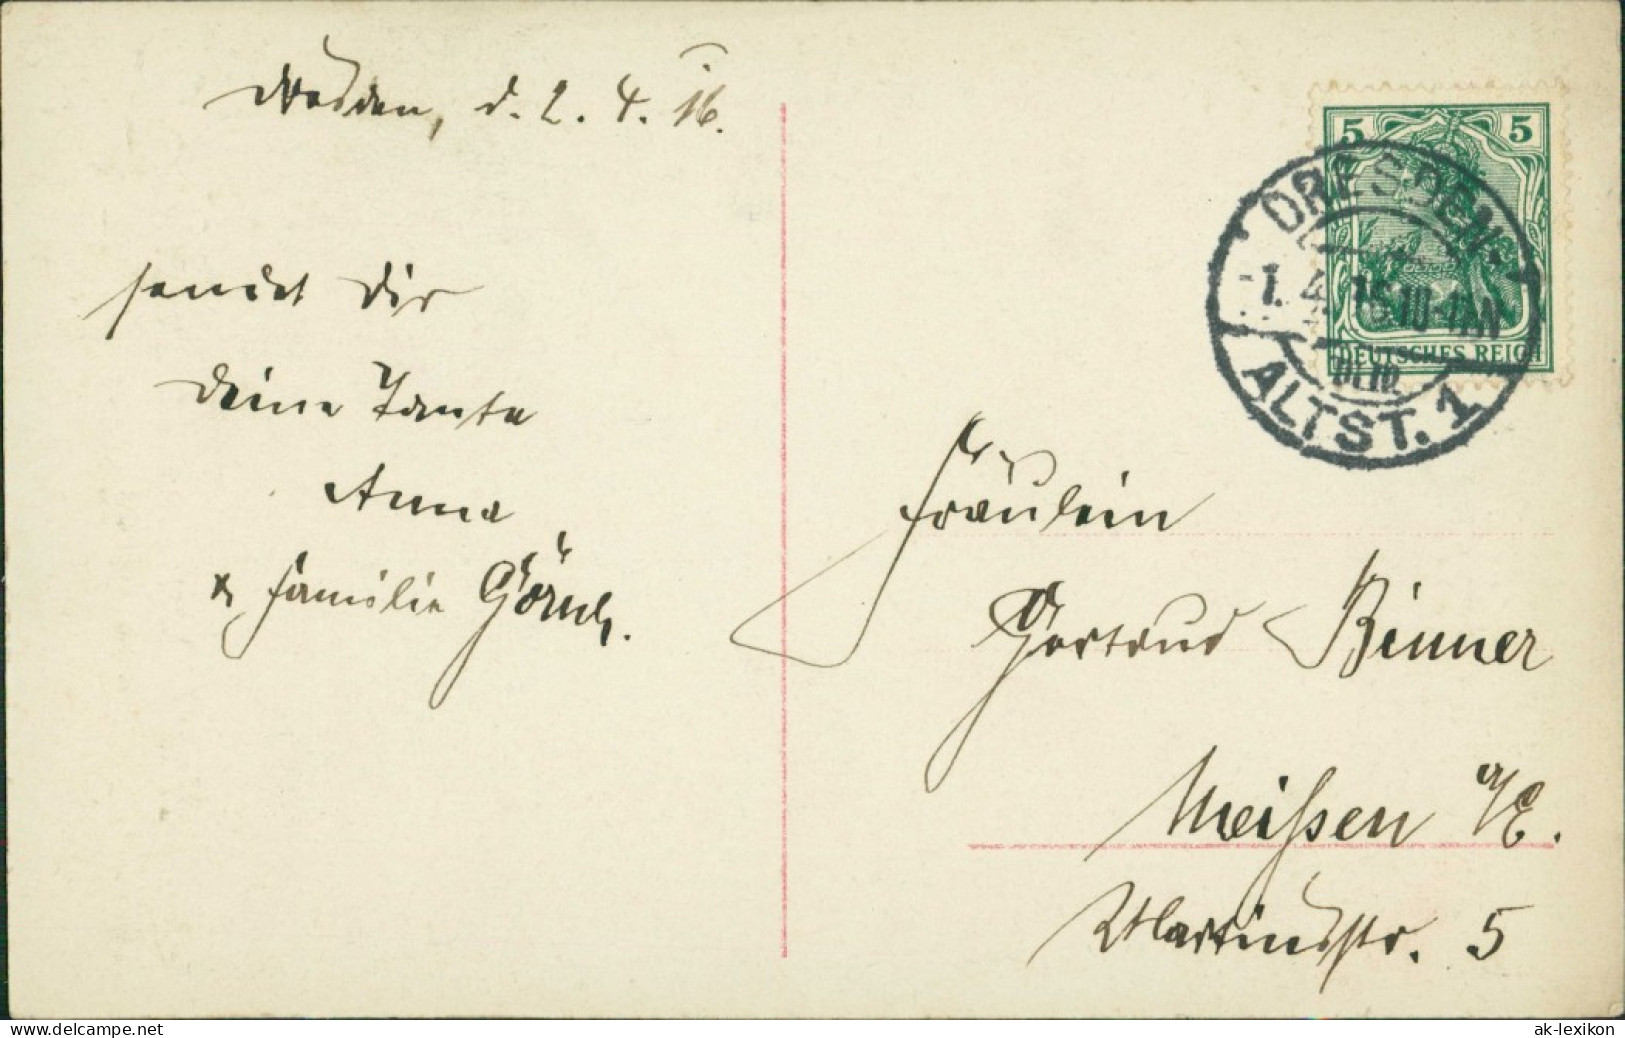 Dresden, d. 2. 4. 16.
sendet Dir
Deine Tante
Anna
& Familie
5 5
DEUTSCHES REICH
DRESDEN-
ALTST. 1
Fräulein
Gertrud Binner
Meißen a/E.
Martinstr. 5
www.delcampe.net
ak-lexikon